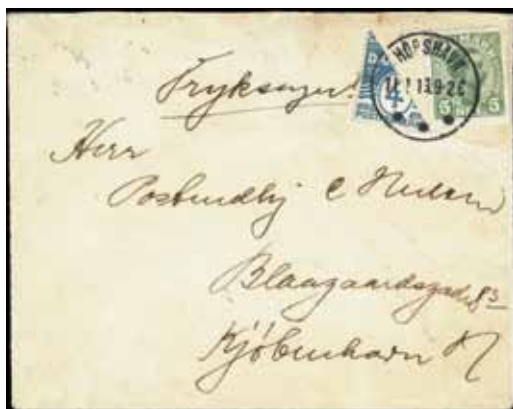 THORSHAVN
13.9-2E
4
5 5
Tryksager
Herr
Postbudbj C Nielsen
Blaagaardsgade 83
Kjöbenhavn N